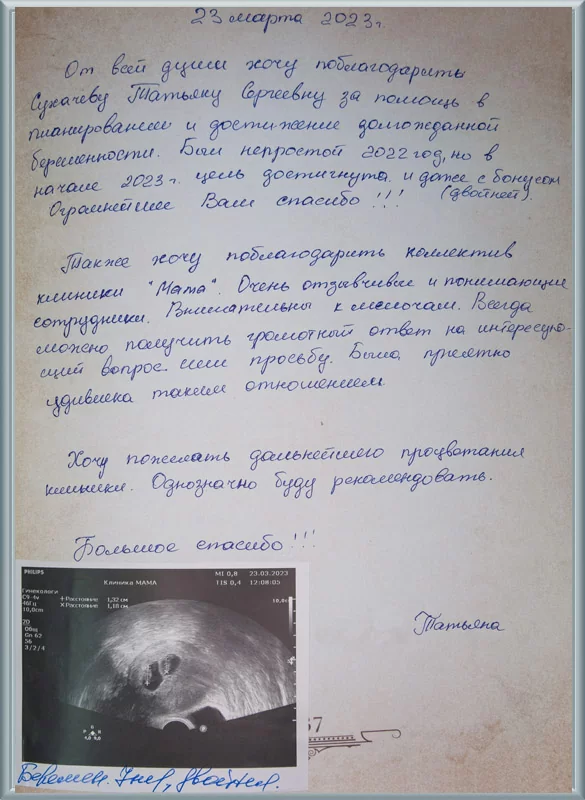 23 марта 2023г.
От всей души хочу поблагодарить
Сухачеву Татьяну Сергеевну за помощь в
планировании и достижение долгожданной
беременности. Был непростой 2022 год, но в
начале 2023г. цель достигнута и даже с бонусом
(двойней).
Огромнейшее Вам спасибо!!!
Также хочу поблагодарить коллектив
клиники "Мама". Очень отзывчивые и понимающие
сотрудники. Внимательны к мелочам. Всегда
можно получить грамотный ответ на интересую-
щий вопрос или просьбу. Была приятно
удивлена таким отношением.
Хочу пожелать дальнейшего процветания
клиники. Однозначно буду рекомендовать.
Большое спасибо!!!
Татьяна
PHILIPS
Клиника МАМА
MI 0,8 23.03.2023
TIS 0,4 12:08:05
Гинекологи
C9-4v
46Гц
10,0см
+ Расстояние 1,32 см
X Расстояние 1,18 см
2D
Общ
Gn 62
56
3/2/4
10,0
37
Беремен. 7 нед, двойня.